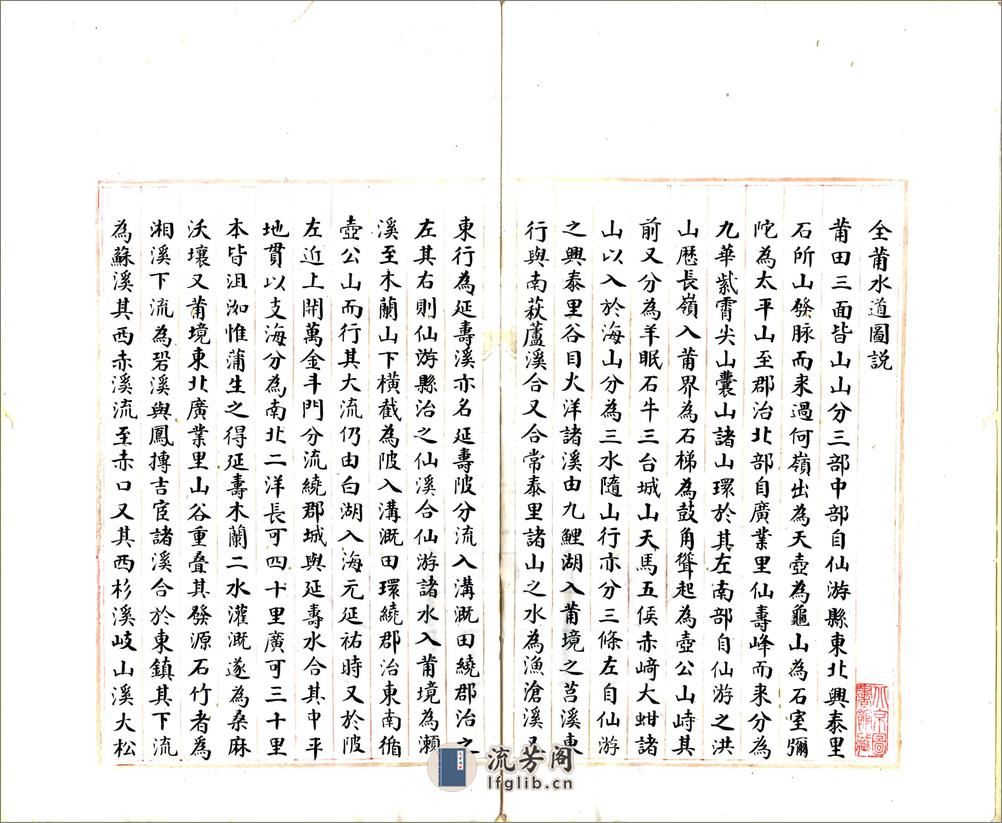 全莆水道圖說
莆田三面皆山山分三部中部自仙游縣東北興泰里
石所山發脉而来過何嶺出為天壺為龜山為石室彌
陀為太平山至郡治北部自廣業里仙壽峰而来分為
九華紫霄尖山囊山諸山環於其左南部自仙游之洪
山歷長嶺入莆界為石梯為鼓角聳起為壺公山峙其
前又分為羊眠石牛三台城山天馬五侯赤﨑大蚶諸
山以入於海山分為三水隨山行亦分三條左自仙游
之興泰里谷目火洋諸溪由九鯉湖入莆境之莒溪東
行與南萩蘆溪合又合常泰里諸山之水為漁滄溪又
東行為延壽溪亦名延壽陂分流入溝溉田繞郡治之
左其右則仙游縣治之仙溪合仙游諸水入莆境為瀬
溪至木蘭山下橫截為陂入溝溉田環繞郡治東南循
壺公山而行其大流仍由白湖入海元延祐時又於陂
左近上開萬金斗門分流繞郡城與延壽水合其中平
地貫以支海分為南北二洋長可四十里廣可三十里
本皆沮洳惟蒲生之得延壽木蘭二水灌溉遂為桑麻
沃壤又莆境東北廣業里山谷重叠其發源石竹者為
湘溪下流為碧溪與鳳摶吉宦諸溪合於東鎮其下流
為蘇溪其西赤溪流至赤口又其西杉溪岐山溪大松
北京圖
書館藏
流芳阁
lfglib.cn